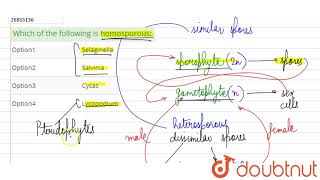 26855136
Which of the following is homosporous:
Option1 Selaginella
Option2 Salvinia
Option3 Cycas
Option4 Lycopodium
Pteridophytes
similar spores
sporophyte (2n) → spores
gametophyte (n) → sex cells
male
heterosporous
dissimilar spores
female
doubtnut